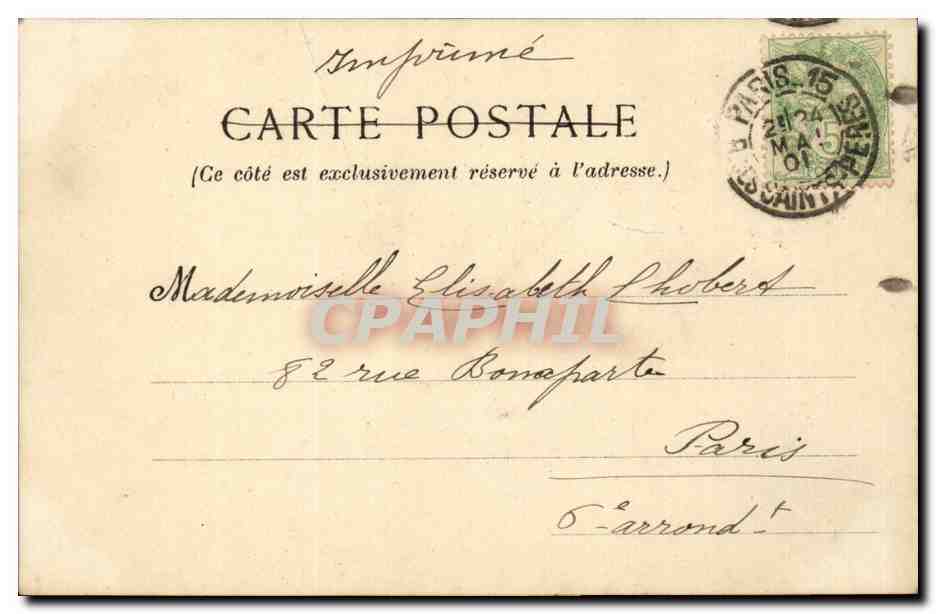 Imprimé
CARTE POSTALE
(Ce côté est exclusivement réservé à l'adresse.)
PARIS 15
24
MAI
01
SAINTS-PERES
5
Mademoiselle Elisabeth Chobert
CPAPHIL
82 rue Bonaparte
Paris
6e arrondt